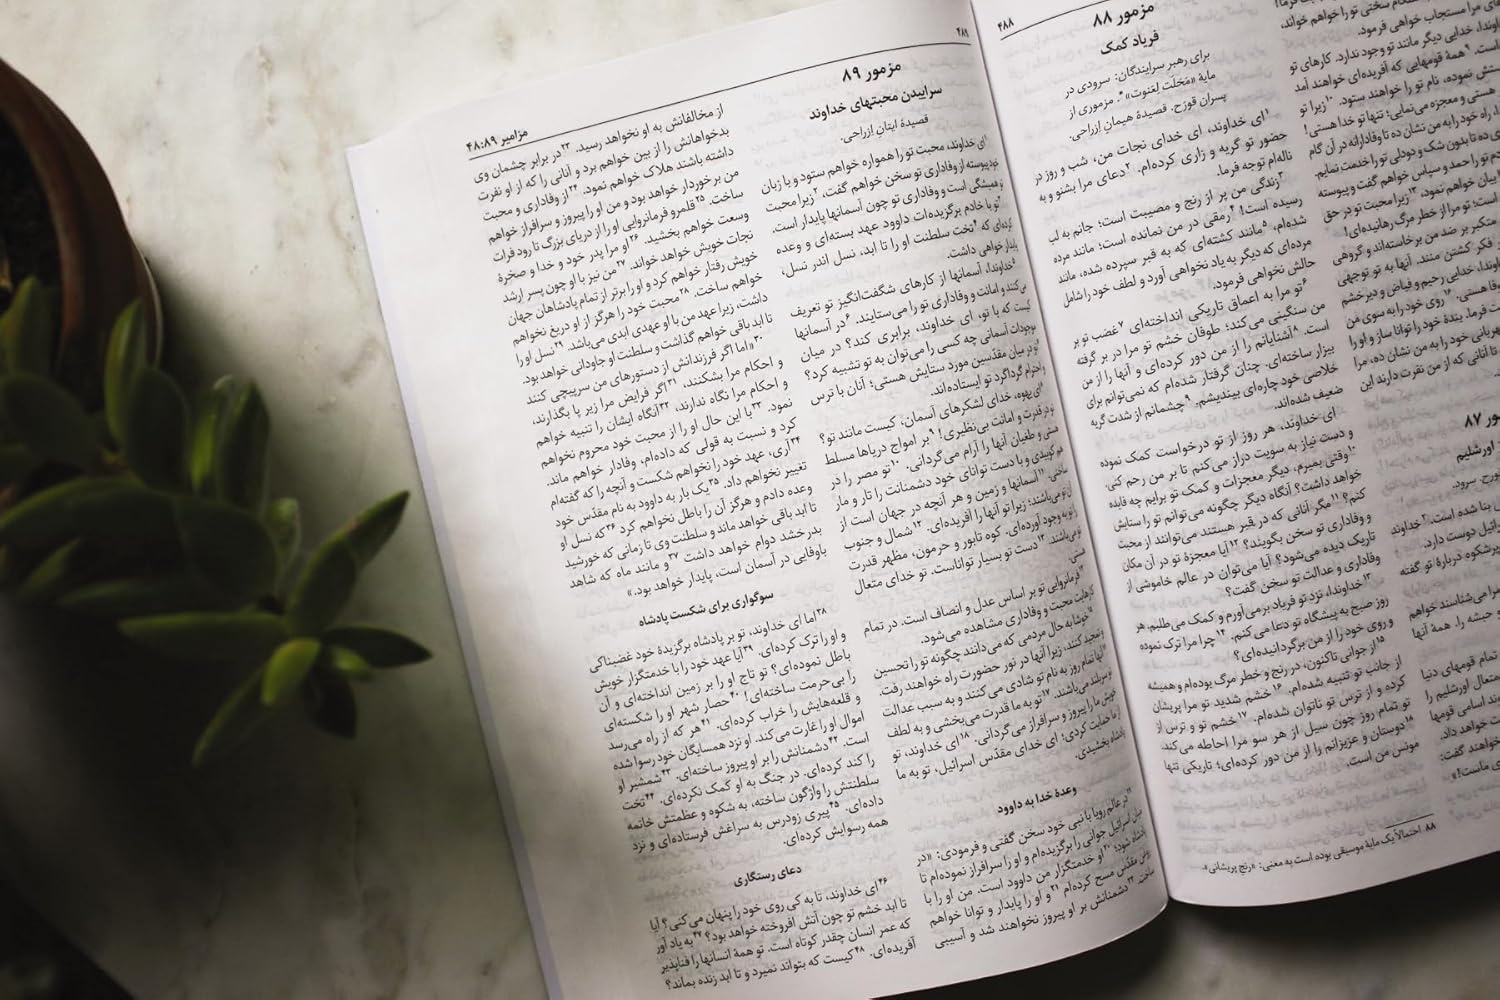 ۴۸۸
مزمور ۸۸
فریاد کمک
برای رهبر سرایندگان: سرودی در
مایهٔ «مَحَلَت لِعَنوت»*. مزموری از
پسران قورَح. قصیدهٔ هیمانِ اِزراحی.
۱ای خداوند، ای خدای نجات من، شب و روز در
حضور تو گریه و زاری کرده‌ام. ۲دعای مرا بشنو و به
ناله‌ام توجه فرما.
۳زندگی من پر از رنج و مصیبت است؛ جانم به لب
رسیده است! ۴رمقی در من نمانده است؛ مانند مرده
شده‌ام، ۵مانند کشته‌ای که به قبر سپرده شده، مانند
مرده‌ای که دیگر به یاد نخواهی آورد و لطف خود را شامل
حالش نخواهی فرمود.
۶تو مرا به اعماق تاریکی انداخته‌ای ۷غضب تو بر
من سنگینی می‌کند؛ طوفان خشم تو مرا در بر گرفته
است. ۸آشنایانم را از من دور کرده‌ای و آنها را از من
بیزار ساخته‌ای. چنان گرفتار شده‌ام که نمی‌توانم برای
خلاصی خود چاره‌ای بیندیشم. ۹چشمانم از شدت گریه
ضعیف شده‌اند.
ای خداوند، هر روز از تو درخواست کمک نموده
و دست نیاز به سویت دراز می‌کنم تا بر من رحم کنی.
۱۰وقتی بمیرم، دیگر معجزات و کمک تو برایم چه فایده
خواهد داشت؟ آنگاه دیگر چگونه می‌توانم تو را ستایش
کنم؟ ۱۱مگر آنانی که در قبر هستند می‌توانند از محبت
و وفاداری تو سخن بگویند؟ ۱۲آیا معجزهٔ تو در آن مکان
تاریک دیده می‌شود؟ آیا می‌توان در عالم خاموشی از
وفاداری و عدالت تو سخن گفت؟
۱۳خداوندا، نزد تو فریاد برمی‌آورم و کمک می‌طلبم، هر
روز صبح به پیشگاه تو دعا می‌کنم. ۱۴چرا مرا ترک نموده
و روی خود را از من برگردانیده‌ای؟
۱۵از جوانی تاکنون، در رنج و خطر مرگ بوده‌ام و همیشه
از جانب تو تنبیه شده‌ام. ۱۶خشم شدید تو مرا پریشان
کرده و از ترس تو ناتوان شده‌ام. ۱۷خشم تو و ترس از
تو تمام روز چون سیل از هر سو مرا احاطه می‌کند.
۱۸دوستان و عزیزانم را از من دور کرده‌ای؛ تاریکی تنها
مونس من است.
۸۸ احتمالاً یک مایهٔ موسیقی بوده است به معنی: «رنج پریشانی».
۴۸۹
مزامیر ۴۸:۸۹
مزمور ۸۹
سراییدن محبتهای خداوند
قصیدهٔ ایتانِ اِزراحی.
۱ای خداوند، محبت تو را همواره خواهم ستود و با زبان
خود پیوسته از وفاداری تو سخن خواهم گفت، ۲زیرا محبت
تو همیشگی است و وفاداری تو چون آسمانها پایدار است.
۳تو با خادم برگزیده‌ات داوود عهد بسته‌ای و وعده
کرده‌ای که ۴تخت سلطنت او را تا ابد، نسل اندر نسل،
پایدار خواهی داشت.
۵خداوندا، آسمانها از کارهای شگفت‌انگیز تو تعریف
می‌کنند و امانت و وفاداری تو را می‌ستایند. ۶در آسمانها
کیست که با تو، ای خداوند، برابری کند؟ در میان
موجودات آسمانی چه کسی را می‌توان به تو تشبیه کرد؟
۷تو در میان مقدّسین مورد ستایش هستی؛ آنان با ترس
و احترام گرداگرد تو ایستاده‌اند.
۸ای یهوه، خدای لشکرهای آسمان، کیست مانند تو؟
تو در قدرت و امانت بی‌نظیری! ۹بر امواج دریاها مسلط
هستی و طغیان آنها را آرام می‌گردانی. ۱۰تو مصر را در
هم کوبیدی و با دست توانای خود دشمنانت را تار و مار
ساختی. ۱۱آسمانها و زمین و هر آنچه در جهان است از
آنِ تو می‌باشند؛ زیرا تو آنها را آفریده‌ای. ۱۲شمال و جنوب
را تو به وجود آورده‌ای. کوه تابور و حرمون، مظهر قدرت
تو می‌باشند. ۱۳دست تو بسیار تواناست. تو خدای متعال
هستی.
۱۴فرمانروایی تو بر اساس عدل و انصاف است. در تمام
کارهایت محبت و وفاداری مشاهده می‌شود.
۱۵خوشابه‌حال مردمی که می‌دانند چگونه تو را تحسین
و تمجید کنند، زیرا آنها در نور حضورت راه خواهند رفت.
۱۶آنها تمام روز به نام تو شادی می‌کنند و به سبب عدالت
تو سربلند می‌باشند. ۱۷تو به ما قدرت می‌بخشی و به لطف
خویش ما را پیروز و سرافراز می‌گردانی. ۱۸ای خداوند، تو
از ما حمایت کردی؛ ای خدای مقدّس اسرائیل، تو به ما
پادشاه بخشیدی.
وعدهٔ خدا به داوود
۱۹در عالم رویا با نبی خود سخن گفتی و فرمودی: «در
میان اسرائیل جوانی را برگزیده‌ام و او را سرافراز نموده‌ام تا
پادشاه شود؛ ۲۰او خدمتگزار من داوود است. من او را با
روغن مقدّس مسح کرده‌ام ۲۱و او را پایدار و توانا خواهم
ساخت. ۲۲دشمنانش بر او پیروز نخواهند شد و آسیبی
از مخالفانش به او نخواهد رسید. ۲۳در برابر چشمان وی
بدخواهانش را از بین خواهم برد و آنانی را که از او نفرت
داشته باشند هلاک خواهم نمود. ۲۴از وفاداری و محبت
من برخوردار خواهد بود و من او را پیروز و سرافراز خواهم
ساخت. ۲۵قلمرو فرمانروایی او را از دریای بزرگ تا رود فرات
وسعت خواهم بخشید. ۲۶او مرا پدر خود و خدا و صخرهٔ
نجات خویش خواهد خواند. ۲۷من نیز با او چون پسر ارشد
خویش رفتار خواهم کرد و او را برتر از تمام پادشاهان جهان
خواهم ساخت. ۲۸محبت خود را هرگز از او دریغ نخواهم
داشت، زیرا عهد من با او عهدی ابدی می‌باشد. ۲۹نسل او را
تا ابد باقی خواهم گذاشت و سلطنت او جاودانی خواهد بود.
۳۰«اما اگر فرزندانش از دستورهای من سرپیچی کنند
و احکام مرا بشکنند، ۳۱اگر فرایض مرا زیر پا بگذارند،
و احکام مرا نگاه ندارند، ۳۲آنگاه ایشان را تنبیه خواهم
نمود. ۳۳با این حال او را از محبت خود محروم نخواهم
کرد و نسبت به قولی که داده‌ام، وفادار خواهم ماند.
۳۴آری، عهد خود را نخواهم شکست و آنچه را که گفته‌ام
تغییر نخواهم داد. ۳۵یک بار به داوود به نام مقدّس خود
وعده دادم و هرگز آن را باطل نخواهم کرد ۳۶که نسل او
تا ابد باقی خواهد ماند و سلطنت وی تا زمانی که خورشید
بدرخشد دوام خواهد داشت ۳۷و مانند ماه که شاهد
باوفایی در آسمان است، پایدار خواهد بود.»
سوگواری برای شکست پادشاه
۳۸اما ای خداوند، تو بر پادشاه برگزیدهٔ خود غضبناکی
و او را ترک کرده‌ای. ۳۹آیا عهد خود را با خدمتگزار خویش
باطل نموده‌ای؟ تو تاج او را بر زمین انداخته‌ای و آن
را بی‌حرمت ساخته‌ای! ۴۰حصار شهر او را شکسته‌ای
و قلعه‌هایش را خراب کرده‌ای. ۴۱هر که از راه می‌رسد
اموال او را غارت می‌کند. او نزد همسایگان خود رسوا شده
است. ۴۲دشمنانش را بر او پیروز ساخته‌ای. ۴۳شمشیر او
را کند کرده‌ای. در جنگ به او کمک نکرده‌ای. ۴۴تخت
سلطنتش را واژگون ساخته، به شکوه و عظمتش خاتمه
داده‌ای. ۴۵پیری زودرس به سراغش فرستاده‌ای و نزد
همه رسوایش کرده‌ای.
دعای رستگاری
۴۶ای خداوند، تا به کی روی خود را پنهان می‌کنی؟ آیا
تا ابد خشم تو چون آتش افروخته خواهد بود؟ ۴۷به یاد آور
که عمر انسان چقدر کوتاه است. تو همهٔ انسانها را فناپذیر
آفریده‌ای. ۴۸کیست که بتواند نمیرد و تا ابد زنده بماند؟